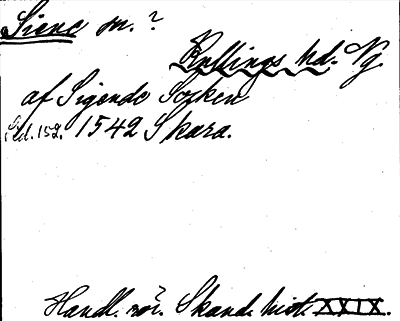 Siene m.?
Kullings hd. Vg.
af Sigende Socken
sid. 152. 1542 Skara.
Handl. rör. Skand. hist. XXIX.